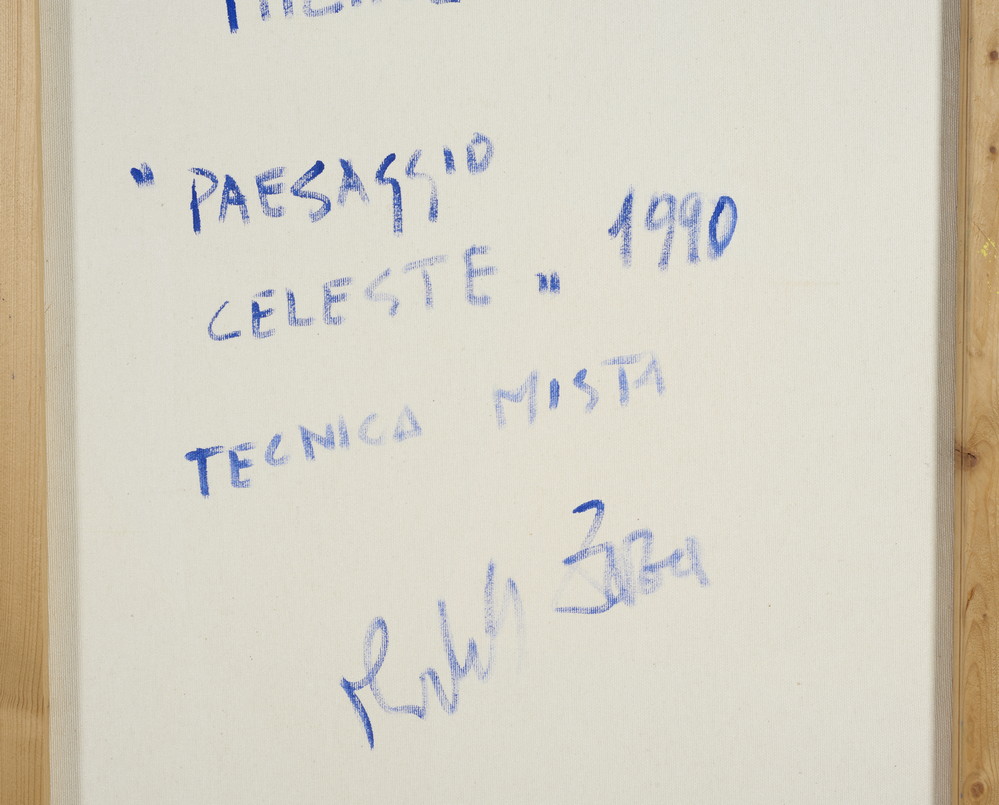 " PAESAGGIO
CELESTE " 1990
TECNICA MISTA